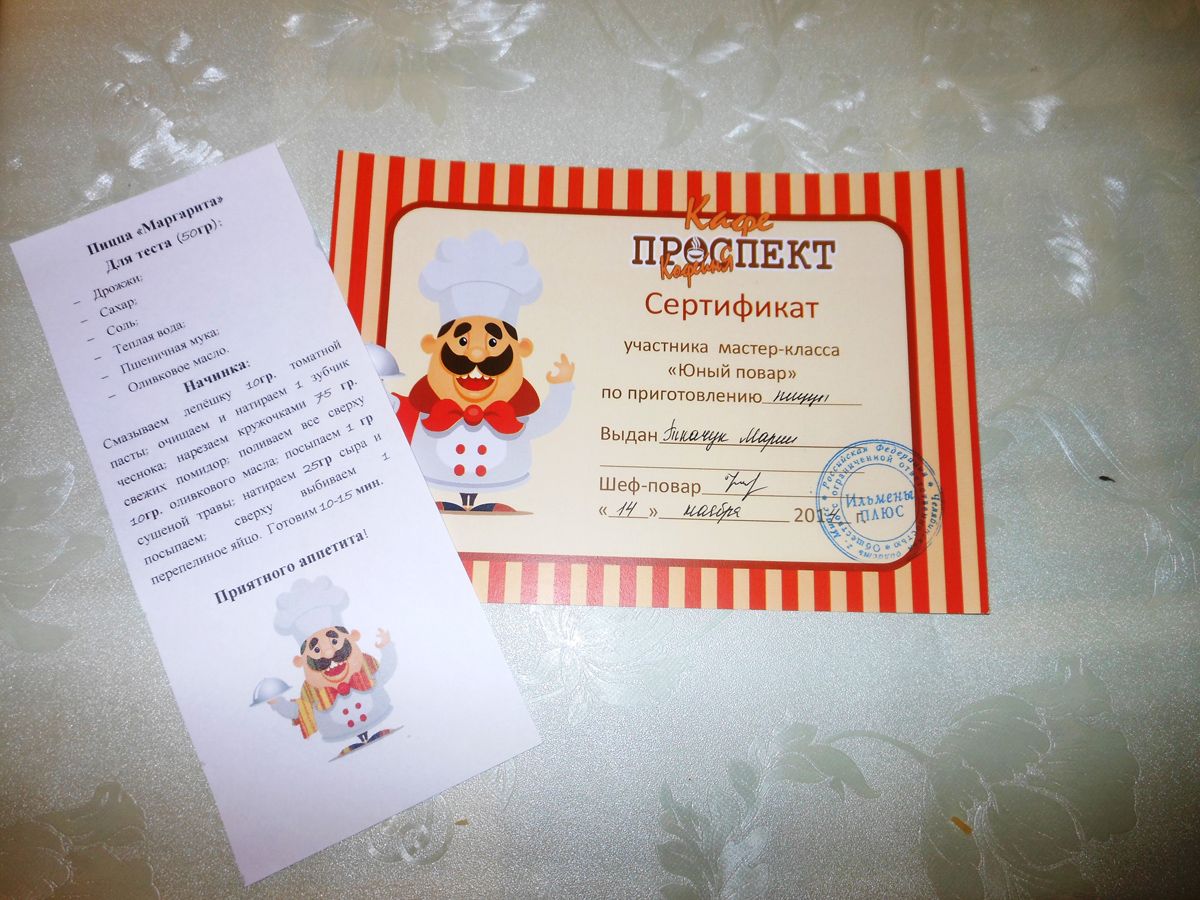 Пицца «Маргарита»
Для теста (50гр):
– Дрожжи;
– Сахар;
– Соль;
– Теплая вода;
– Пшеничная мука;
– Оливковое масло.
Начинка:
Смазываем лепёшку 10гр. томатной
пасты; очищаем и натираем 1 зубчик
чеснока; нарезаем кружочками 75 гр.
свежих помидор; поливаем все сверху
10гр. оливкового масла; посыпаем 1 гр
сушеной травы; натираем 25гр сыра и
посыпаем; сверху выбиваем 1
перепелиное яйцо. Готовим 10-15 мин.
Приятного аппетита!
Кафе
ПРОСПЕКТ
Кофейня
Сертификат
участника мастер-класса
«Юный повар»
по приготовлению пиццы
Выдан Ткачук Марии
Шеф-повар
«14» ноября 2014 г.
Российская Федерация
г. Миасс
Общество с ограниченной ответственностью
Ильмены
ПЛЮС